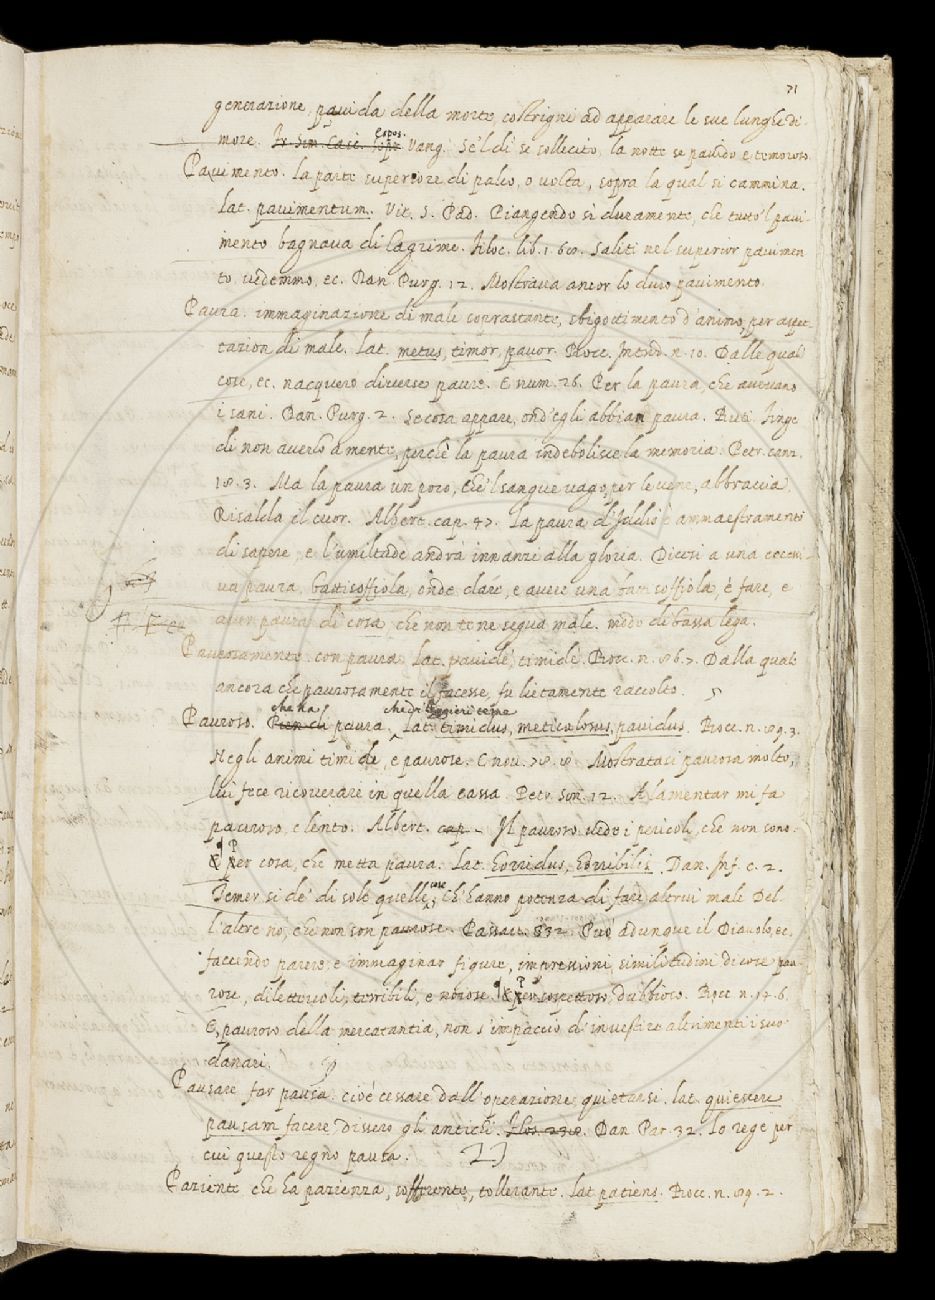 71
generazione pavida della morte, costrigni ad apparare le sue lunghe di-
more. Fr. Sim. Casc. sopr espos. Vang. Se 'l dì se sollecito, la notte se pavido e temoroso.
Pavimento. La parte superiore di palco, o volta, sopra la qual si cammina.
Lat. pavimentum. Vit. S. Pad. Piangendo sì duramente, che tutto 'l pavi-
mento bagnava di lagrime. Filoc. lib. 1. 60. Saliti nel superior pavimen
to, vedemmo, ec. Dan. Purg. 12. Mostrava ancor lo duro pavimento.
Paura. immaginazione di male soprastante, sbigottimento d'animo, per aspet-
tazion di male. Lat. metus, timor, pavor. Bocc. Introd. n. 10. Dalle quai
cose, ec. nacquero diverse paure. E num. 26. Per la paura, che avevano
i sani. Dan. Purg. 2. Se cosa appare, ond'egli abbian paura. But. Finge
di non averlo a mente, perchè la paura indebolisce la memoria. Petr. canz.
18. 3. Ma la paura un poco, che 'l sangue vago, per le vene, abbraccia,
Risalda il cuor. Albert. cap. 47. La paura d'Iddio è ammaestramento
di sapere, e l'umiltade andrà innanzi alla gloria. Dicesi a una eccessi-
va paura, battisoffiola, onde dare, e avere una battisoffiola, è fare, e
aver paura di cosa che non te ne segua male. modo di bassa lega.
Paurosamente. con paura. Lat. pavidè, timidè. Bocc. n. 86. 7. Dalla quale
ancora che paurosamente il facesse, fu lietamente raccolto.
che ha che di leggieri teme
Pauroso. Pien di paura, Lat. timidus, meticulosus, pavidus. Bocc. n. 89. 3.
Negli animi timide, e paurose. E nov. 78. 8. Mostratasi paurosa molto,
lui fece ricoverare in quella cassa. Petr. Son. 12. A lamentar mi fa
pauroso, e lento. Albert. cap. Il pauroso vede i pericoli, che non sono.
& Per cosa, che metta paura. Lat. horridus, horribilis. Dan. Inf. c. 2.
Temer si dè di sole quelle cose, Ch'hanno potenza di fare altrui male Del-
l'altre no, che non son paurose. Passav. 332. Può adunque il Diavolo, ec.
faccendo parere, e immaginar figure, impressioni, similitudini di cose pau
rose, dilettevoli, terribili, e noiose. & Per sospettoso, dubbioso. Bocc. n. 14. 6.
E, pauroso della mercatantia, non s'impacciò d'investire altrimenti i suoi
danari.
Pausare. far pausa. cioè cessare dall'operazione, quietarsi. lat. quiescere
pausam facere dissero gli antichi. Dan. Par. 32. Lo rege per
cui questo regno pausa.
Paziente. che ha pazienza, sofferente, tollerante. lat. patiens. Bocc. n. 89. 2.